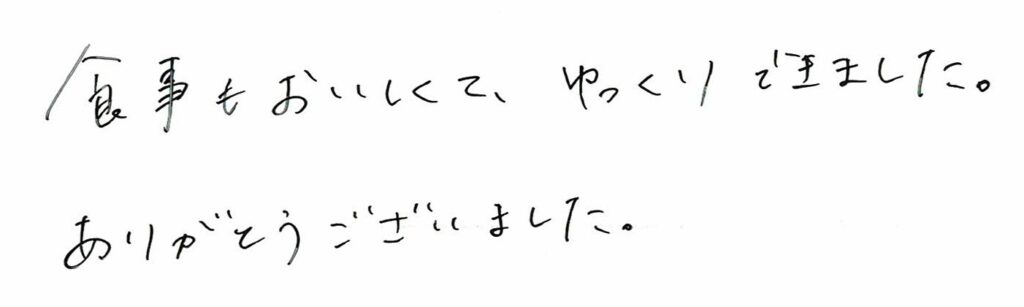 食事もおいしくて、ゆっくりできました。
ありがとうございました。